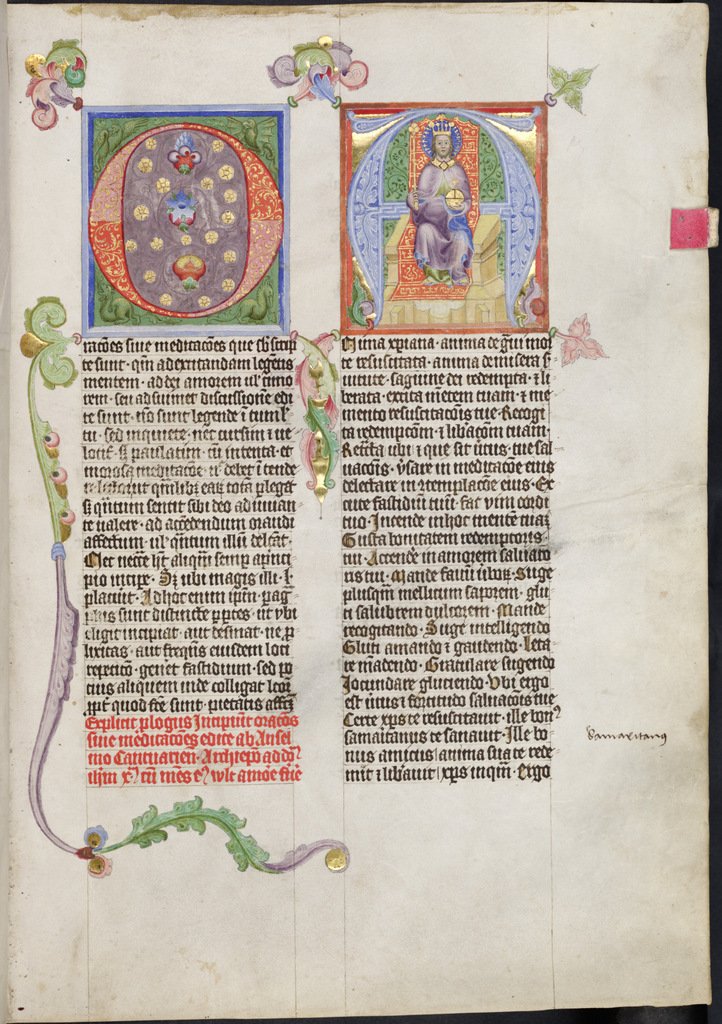 O
rac̄oes siue meditac̄oes que sb̄ scrip
te sunt · qm̄ ad excitandam legent̄s
mentem · ad dei amorem ul' timo
rem · seu ad suimet discussionē edi
te sunt · nō sunt legende ī tumul
tu · sed in quiete · nec cursim ⁊ ue
loci�t · sꝫ paulatim · cū intenta et
morosa meditac̄oe · nͨ debet ītende
tͥ lib� sꝫ q̄ntum sentit sibi deo adiuuan
te ualere · ad accēdendum orandi
affectum · ul' q̄ntum illū delc̄at ·
Nec necē hꝫ aliqm̄ semꝑ a pͥnci
pio incipe · Sꝫ ubi magis illi ·
placuit · Ad hoc enim ip̄m · paḡ
phis sunt distincte ꝑ ꝑtes · ut ubi
eligit incipiat · aut desinat · ne ꝓ
lixitas · aut freq̄ns eiusdem loci
repeticō · genet fastidium · sed po
cius aliquem inde colligat lc̄or
ꝓpt̄ quod fc̄e sunt · pietatis affc̄m
Explicit ꝓlogus Incipiūt orac̄oēs
siue medicac̄oēs edite ab Ansel
mo Cantuarien̄ · Archiep̄o ad dn̄m
A
Nima xp̄iana · anima de ḡui mor
te resuscitata · anima de misera s̄
uitute · saḡuine dei redempta · ⁊ li
berata · excita mētem tuam · ⁊ me
mento resuscitac̄ois tue · Recogi
ta redempc̄om · ⁊ libac̄om tuam ·
Retc̄ta ubi · ⁊ que sit ūtus · tue sal
uac̄ois · ūsare in meditac̄oe eius
delectare in ꝯtemplac̄oe eius · Ex
cute fastidiū tuū · fac vim cordi
tuo · Intende in hoc mentē tuaꝫ
Gusta bonitatem redemptoris
tui · Accende in amorem saluato
ris tui · Mande fauū ūboꝝ · Suge
plusqm̄ mellitum saporem · glu
ti salubrem dulcorem · Mande
recogitando · Suge intelligendo
Gluti amando ⁊ gaudendo · Leta
re mādendo · Gratulare sugendo
Jocundare gluciendo · Vbi ergo
est ūtus ⁊ fortitudo saluac̄ois tue
Certe xp̄s te resuscitauit · ille bonꝰ
samaritanus te sanauit · Ille bo
nus amicus / anima sua te rede
mit ⁊ libauit / xp̄s inqm̄ · Ergo
Samaritanꝰ